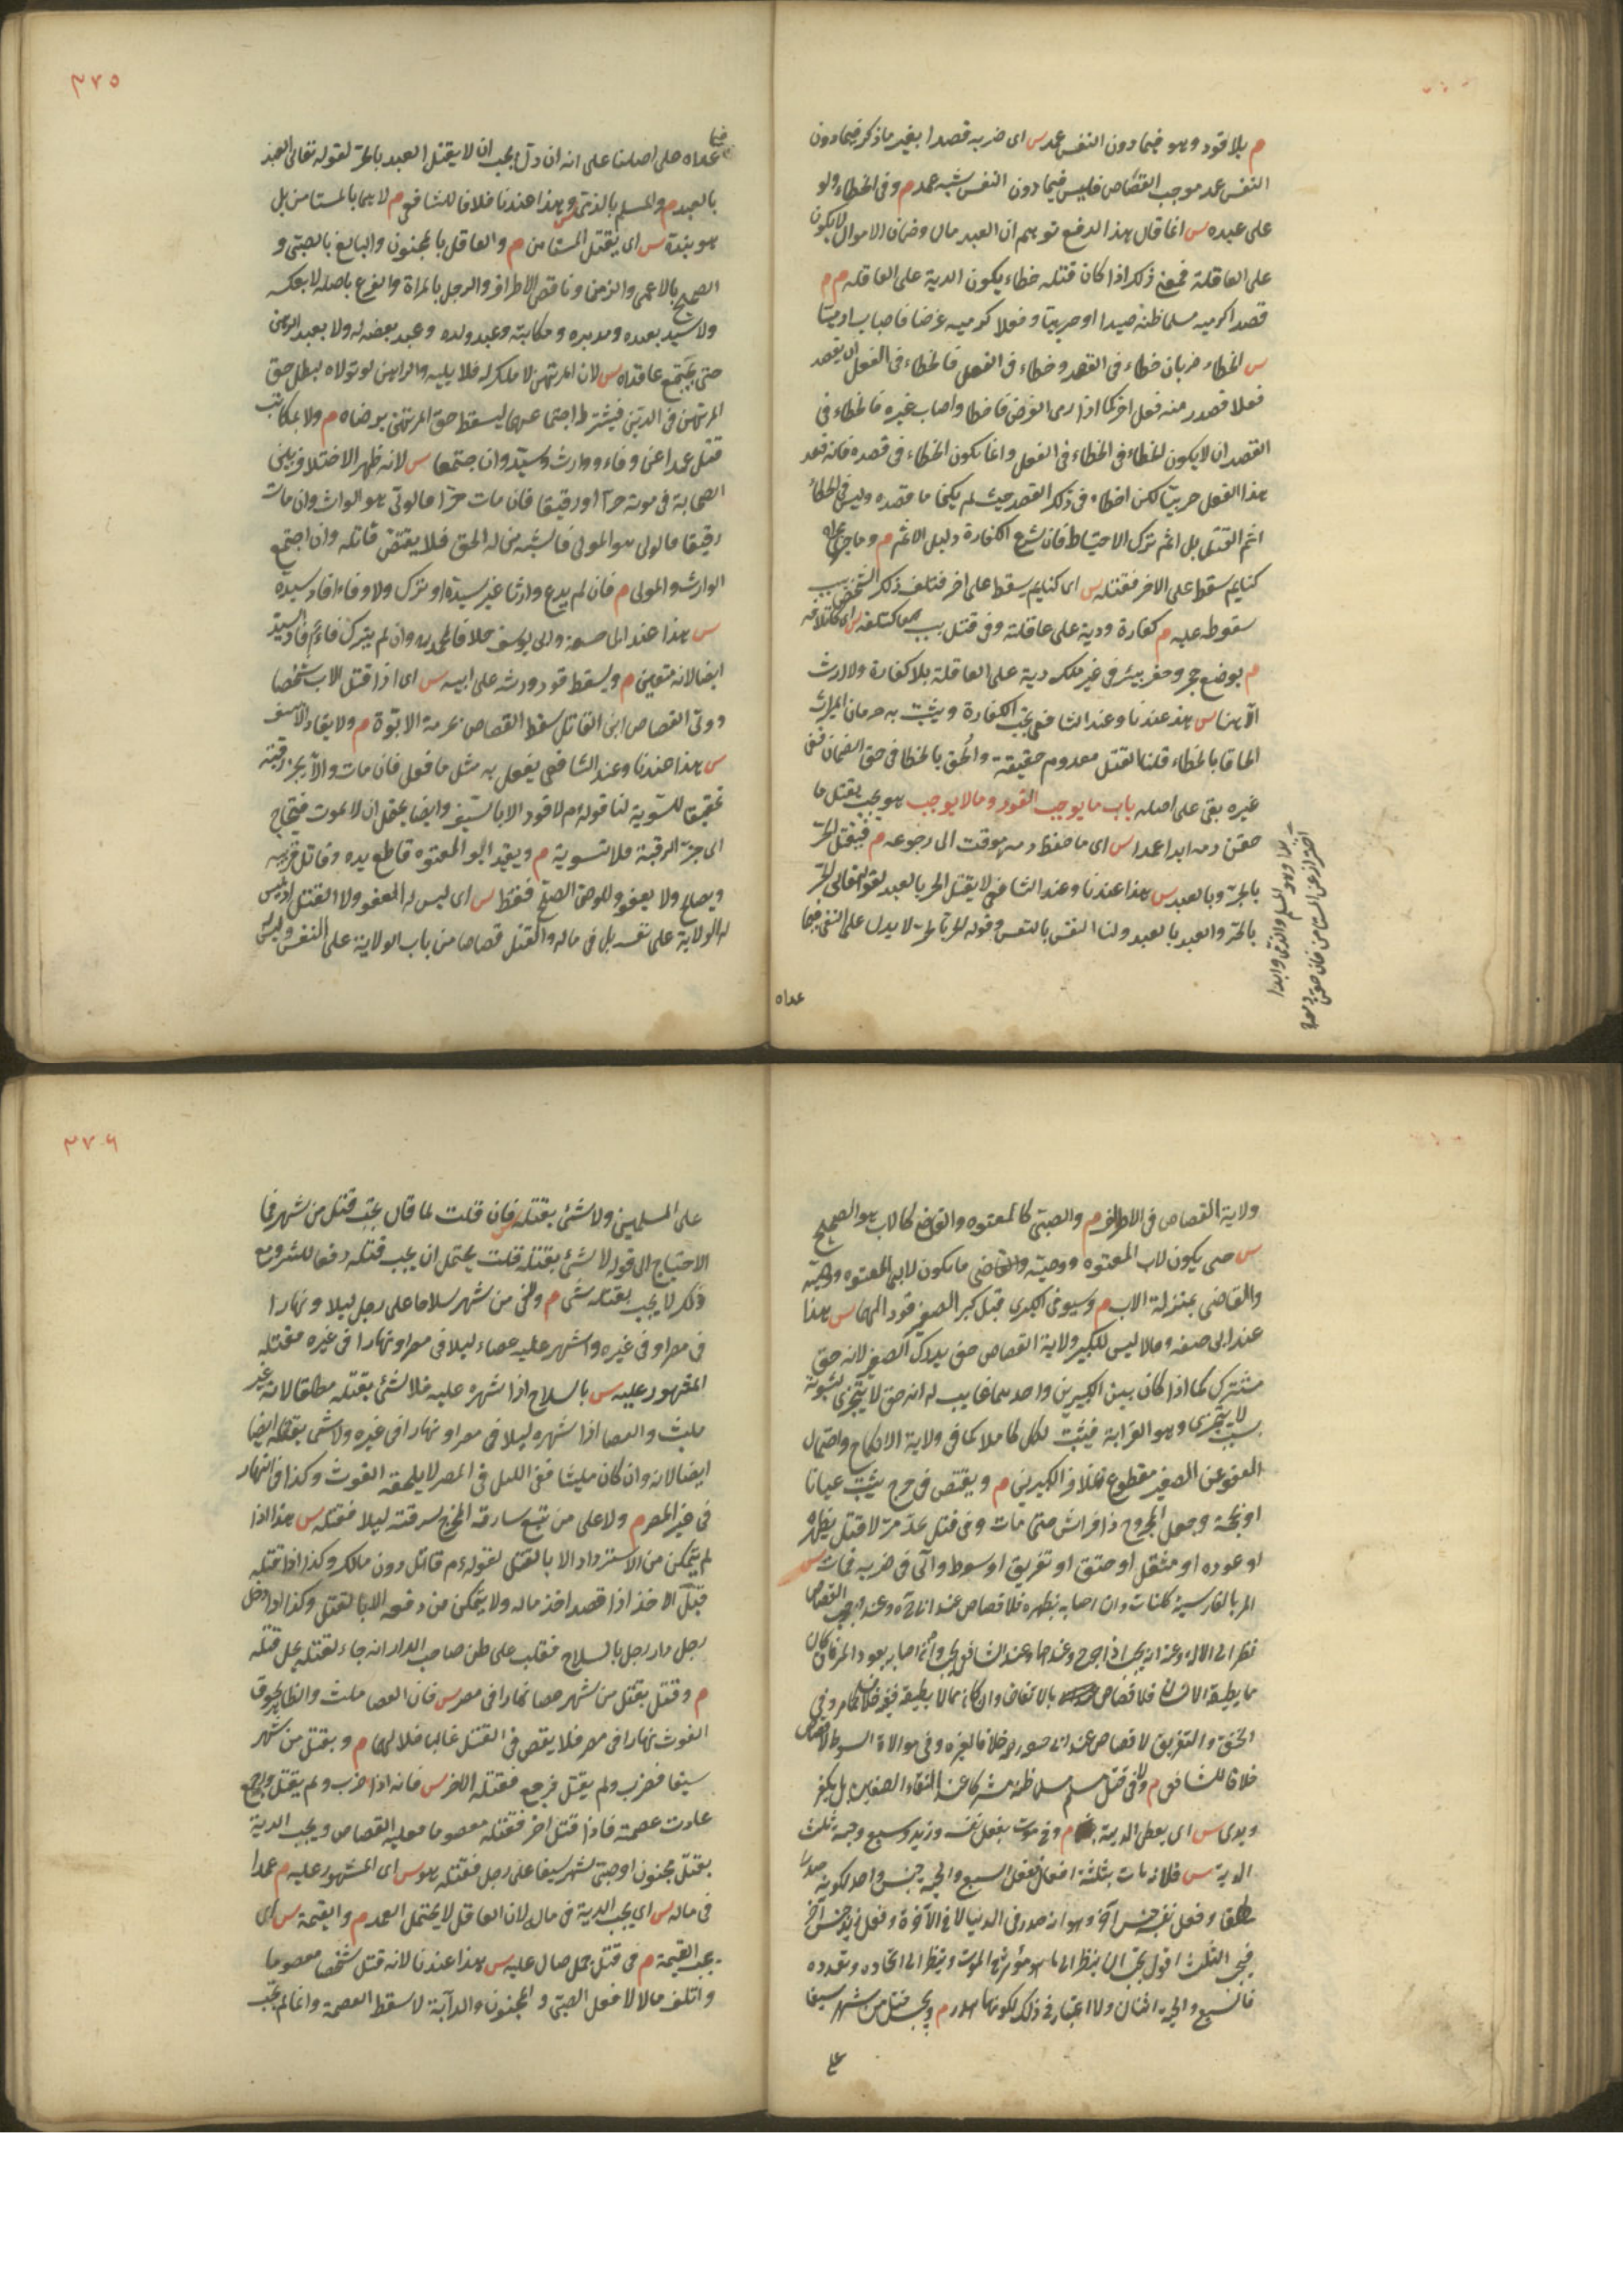 م بلا قود وهو فيما دون النفس عمد س اى ضربه قصدا بغير ما ذكر فيما دون
النفس عمد موجب القصاص فليس فيما دون النفس شبه عمد م وفى الخطاء ولو
على عبده س انما قال هذا لدفع توهم ان العبد مال وضمان الاموال لا يكون
على العاقلة فمع ذلك اذا كان قتله خطاء يكون الدية على العاقله م م
قصدا كرميه مسلما ظنه صيدا او حربيا وفعلا كرميه غرضا فاصاب ادميا
س الخطاء ضربان خطاء فى القصد وخطاء فى الفعل فالخطاء فى الفعل ان يقصد
فعلا فصدر منه فعل اخر كما اذا رمى الغرض فاخطا واصاب غيره فالخطاء فى
القصد ان لا يكون الخطاء فى الفعل وانما يكون الخطاء فى قصده فانه قصد
هذا الفعل حربيا لكن اخطاء فى ذلك القصد حيث لم يكن ما قصده وليس فى الخطاء
اثم القتل بل اثم ترك الاحتياط فان شرع الكفارة دليل الاثم م وما جرى مجراه
كنايم سقط على الاخر فقتله س اى كنايم سقط على اخر فتلف ذلك الشخص بسبب
سقوطه عليه م كفارة ودية على عاقلته وفى قتل بسبب كتلفه
م بوضع حجر وحفر بئر فى غير ملكه دية على العاقلة بلا كفارة ولا ارث
الا هنا س هذا عندنا وعند الشافعى يجب الكفارة ويثبت به حرمان الميراث
الحاقا بالخطاء قلنا القتل معدوم حقيقة والحق بالخطا فى حق الضمان فبقى
غيره بقى على اصله باب ما يوجب القود وما لا يوجب هو يجب بقتل ما
حقن دمه ابدا عمدا س اى ما حفظ دمه موقت الى رجوعه م فيقتل الحر
بالحر وبالعبد س هذا عندنا وعند الشافعى لا يقتل الحر بالعبد لقوله تعالى الحر
بالحر والعبد بالعبد ولنا النفس بالنفس وقوله الحر بالحر لا يدل على النفى فيما
عداه
وهو المسلم والذمى وابدا
احتراز عن المستامن فان حقن دمه
٣٧٥
فيما
عداه على اصلنا على انه ان دل يجب ان لا يقتل العبد بالحر لقوله تعالى العبد
بالعبد م والمسلم بالذمى س هذا عندنا خلافا للشافعى م لا هما بالمستامن بل
هو بنده س اى يقتل المستامن م والعاقل بالمجنون والبالغ بالصبى و
الصحيح بالاعمى والزمن وناقص الاطراف والرجل بالمراة والفرع باصله لا بعكسه
ولا سيد بعبده ومدبره ومكاتبه وعبد ولده وعبد بعضه له ولا بعبد الرهن
حتى يجتمع عاقداه س لان المرتهن لا ملك له فلا يليه والراهن لو تولاه لبطل حق
المرتهن فى الدين فيشترط اجتماعهما ليسقط حق المرتهن برضاه م ولا بمكاتب
قتل عمدا عن وفاء ووارث وسيد وان اجتمعا س لانه ظهر الاختلاف بين
الصحابة فى موته حرا او رقيقا فان مات حرا فالولى هو الوارث وان مات
رقيقا فالولى هو المولى فاشتبه من له الحق فلا يقتص قاتله وان اجتمع
الوارث والمولى م فان لم يدع وارثا غير سيده او ترك ولا وفاء اقاد سيده
س هذا عند ابى حنيفة وابى يوسف خلافا لمحمد ره وان لم يترك وفاء اقاد السيد
ايضا لانه متعين م ويسقط قود ورثه على ابيه س اى اذا قتل الاب شخصا
وولى القصاص ابن القاتل سقط القصاص لحرمة الابوة م ولا يقاد الا بسيف
س هذا عندنا وعند الشافعى يفعل به مثل ما فعل فان مات والا يجز رقبته
تحقيقا للتسوية لنا قوله عم لا قود الا بالسيف وايضا يحتمل ان لا يموت فيحتاج
الى جز الرقبة فلا تسوية م ويقيد ابو المعتوه قاطع يده وقاتل قريبه
ويصالح ولا يعفو وللوصى الصلح فقط س اى ليس له العفو ولا القتل اذ ليس
له الولاية على نفسه بل فى ماله والقتل قصاصا من باب الولاية على النفس وليس
ولاية القصاص فى الاطراف م والصبى كالمعتوه والقاضى كالاب هو الصحيح
س حتى يكون لاب المعتوه ووصيه والقاضى ما يكون لابى المعتوه ووصيه
والقاضى بمنزلة الاب م ويستوفى الكبير قبل كبر الصغير قود الهما س هذا
عند ابى حنيفة وقالا ليس للكبير ولاية القصاص حتى يدرك الصغير لانه حق
مشترك كما اذا كان بين الكبيرين واحدهما غايب له انه حق لا يتجزى لثبوته
بسبب لا يتجزى وهو القرابة فيثبت لكل كاملا كما فى ولاية الانكاح واحتمال
العفو عن الصغير مقطوع بخلاف الكبيرين م ويقتص فى جرح يثبت عيانا
او بحجة وجعل المجروح ذا فراش حتى مات وفى قتل بحد مر لا قتل بظهره
او عوده او مثقل او خنق او تغريق او سوط والى فى ضربه فمات س
المر بالفارسية كلند وان اصابه بظهره فلا قصاص عند ابى ح وعندهما يجب القصاص
نظرا الى الالة وعنه انه يجب اذا جرح وعندهما وعند الشافعى يجب وان اصابه بعود المر فان كان
مما يطيقه الانسان فلا قصاص بالاتفاق وان كان مما لا يطيقه ففيه خلاف كما مر وفى
الخنق والتغريق لا قصاص عند ابى حنيفة ره خلافا لغيره وفى موالاة السوط لا قصاص
خلافا للشافعى م ولا فى قتل مسلم مسلما ظنه مشركا عند التقاء الصفين بل يكفر
ويدى س اى يعطى الدية م وفى موت بفعل نفسه وزيد وسبع وحية ثلث
الدية س فلانه مات بثلثة افعال ففعل السبع والحية جنس واحد لكونه هدرا
مطلقا وفعل نفسه جنس اخر وهو انه هدر فى الدنيا لا فى الآخرة وفعل زيد جنس اخر
فيجب الثلث اقول يجب ان ينظر الى ما هو مؤثر فى الموت وينظر الى اتحاده وتعدده
فالسبع والحية اثنان ولا اعتبار فى ذلك لكونهما هدر م ويجب قتل من شهر سيفا
على
٣٧٦
على المسلمين ولا شئ بقتله س فان قلت لما قال يجب قتل من شهر فما
الاحتياج الى قوله لا شئ بقتله قلت يحتمل ان يجب قتله دفعا للشر ومع
ذلك لا يجب بقتله شى م ولا فى من شهر سلاحا على رجل ليلا ونهارا
فى مصر او فى غيره واشهر عليه عصاء ليلا فى مصر او نهارا فى غيره فقتله
المشهور عليه س بالسلاح اذا شهره عليه فلا شئ بقتله مطلقا لانه غير
ملبث والعصا اذا شهره ليلا فى مصر او نهارا فى غيره ولا شى بقتله ايضا
ايضا لانه وان كان ملبثا ففى الليل فى المصر لا يلحقه الغوث وكذا فى النهار
فى غير المصر م ولا على من تبع سارقه المخرج لسرقته ليلا فقتله س هذا اذا
لم يتمكن من الاسترداد الا بالقتل لقوله عم قاتل دون مالك وكذا اذا قتله
قبل الاخذ اذا قصد اخذ ماله ولا يتمكن من دفعه الا بالقتل وكذا لو دخل
رجل دار رجل بالسلاح فغلب على ظن صاحب الدار انه جاء لقتله يحل قتله
م وقتل بقتل من شهر عصا نهارا فى مصر س فان العصا ملبث والظاهر لحوق
الغوث نهارا فى مصر فلا يفضى فى القتل غالبا خلافا لهما م وبقتل من شهر
سيفا فضرب ولم يقتل فرجع فقتله الاخر س فانه اذا ضرب ولم يقتل ورجع
عادت عصمته فاذا قتل اخر فقتله معصوما فعليه القصاص ويجب الدية
بقتل مجنون او صبى شهر سيفا على رجل فقتله هو س اى المشهور عليه م عمدا
فى ماله س اى يجب الدية فى ماله لان العاقل لا يحتمل العمد م والقيمة س اى
يجب القيمة م فى قتل جمل صال عليه س هذا عندنا لانه قتل شخصا معصوما
واتلف مالا لا فعل الصبى والمجنون والدآبة لا سقط العصمة وانما لم يجب